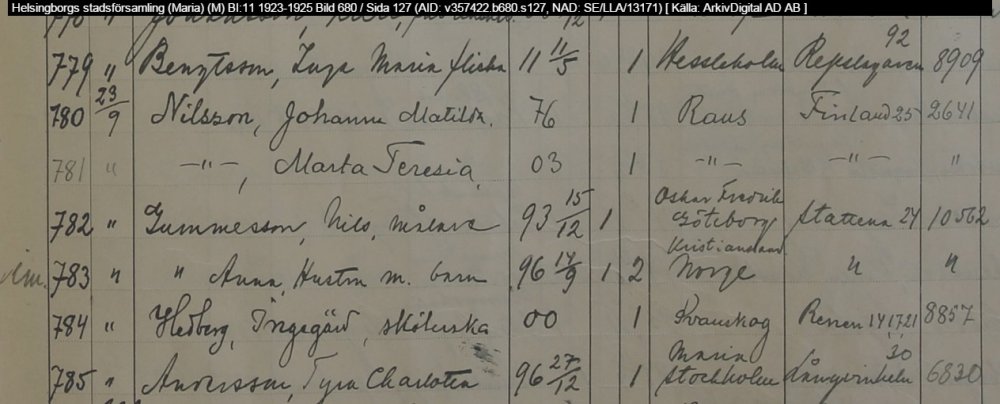 Helsingborgs stadsförsamling (Maria) (M) BI:11 1923-1925 Bild 680 / Sida 127 (AID: v357422.b680.s127, NAD: SE/LLA/13171) [ Källa: ArkivDigital AD AB ]
92
779 " Bengtsson, Inga Maria flicka 11 11/5 1 Hessleholm 8909
780 23/9 Nilsson, Johanna Matilda. 76 1 Raus Finland 25 2641
781 " -"-, Marta Teresia, 03 1 -"- -"- "
782 " Gummesson, Nils, målare 93 15/12 1 Oskar Fredrik Göteborg Stattena 24 10562
783 " " Anna, Hustru m. barn 96 14/9 1 2 Kristiansand Norge " "
784 " Hedberg, Ingegärd, sköterska 00 1 Svanskog Renen 14,17,21 8857
30
785 " Andersson, Tyra Charlotta 96 27/12 1 Maria Stockholm Långvinkeln 6830